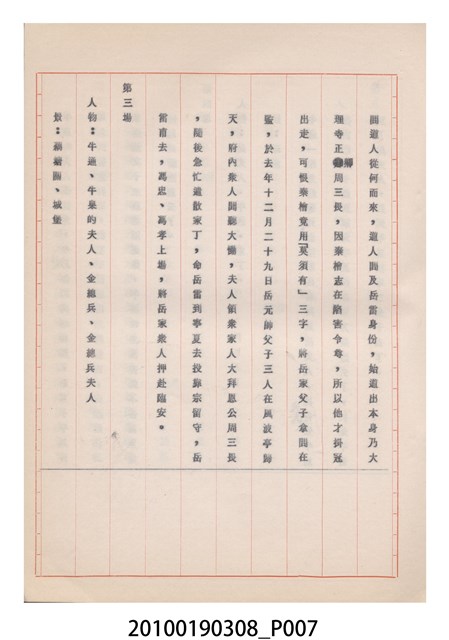 問道人從何而來，道人問及岳雷身份，始道出本身乃大
理寺正卿周三畏，因秦檜志在陷害令尊，所以他才掛冠
出走，可恨秦檜竟用「莫須有」三字，將岳家父子拿問在
監，於去年十二月二十九日岳元帥父子三人在風波亭歸
天，府內眾人聞聽大慟，夫人領眾家人大拜恩公周三畏
，隨後急忙遣散家丁，命岳雷到寧夏去投靠宗留守，岳
雷甫去，馮忠、馮孝上場，將岳家眾人押赴臨安。
第三場
人物：牛通、牛皋的夫人、金總兵、金總兵夫人
景：城堡
20100190308_P007